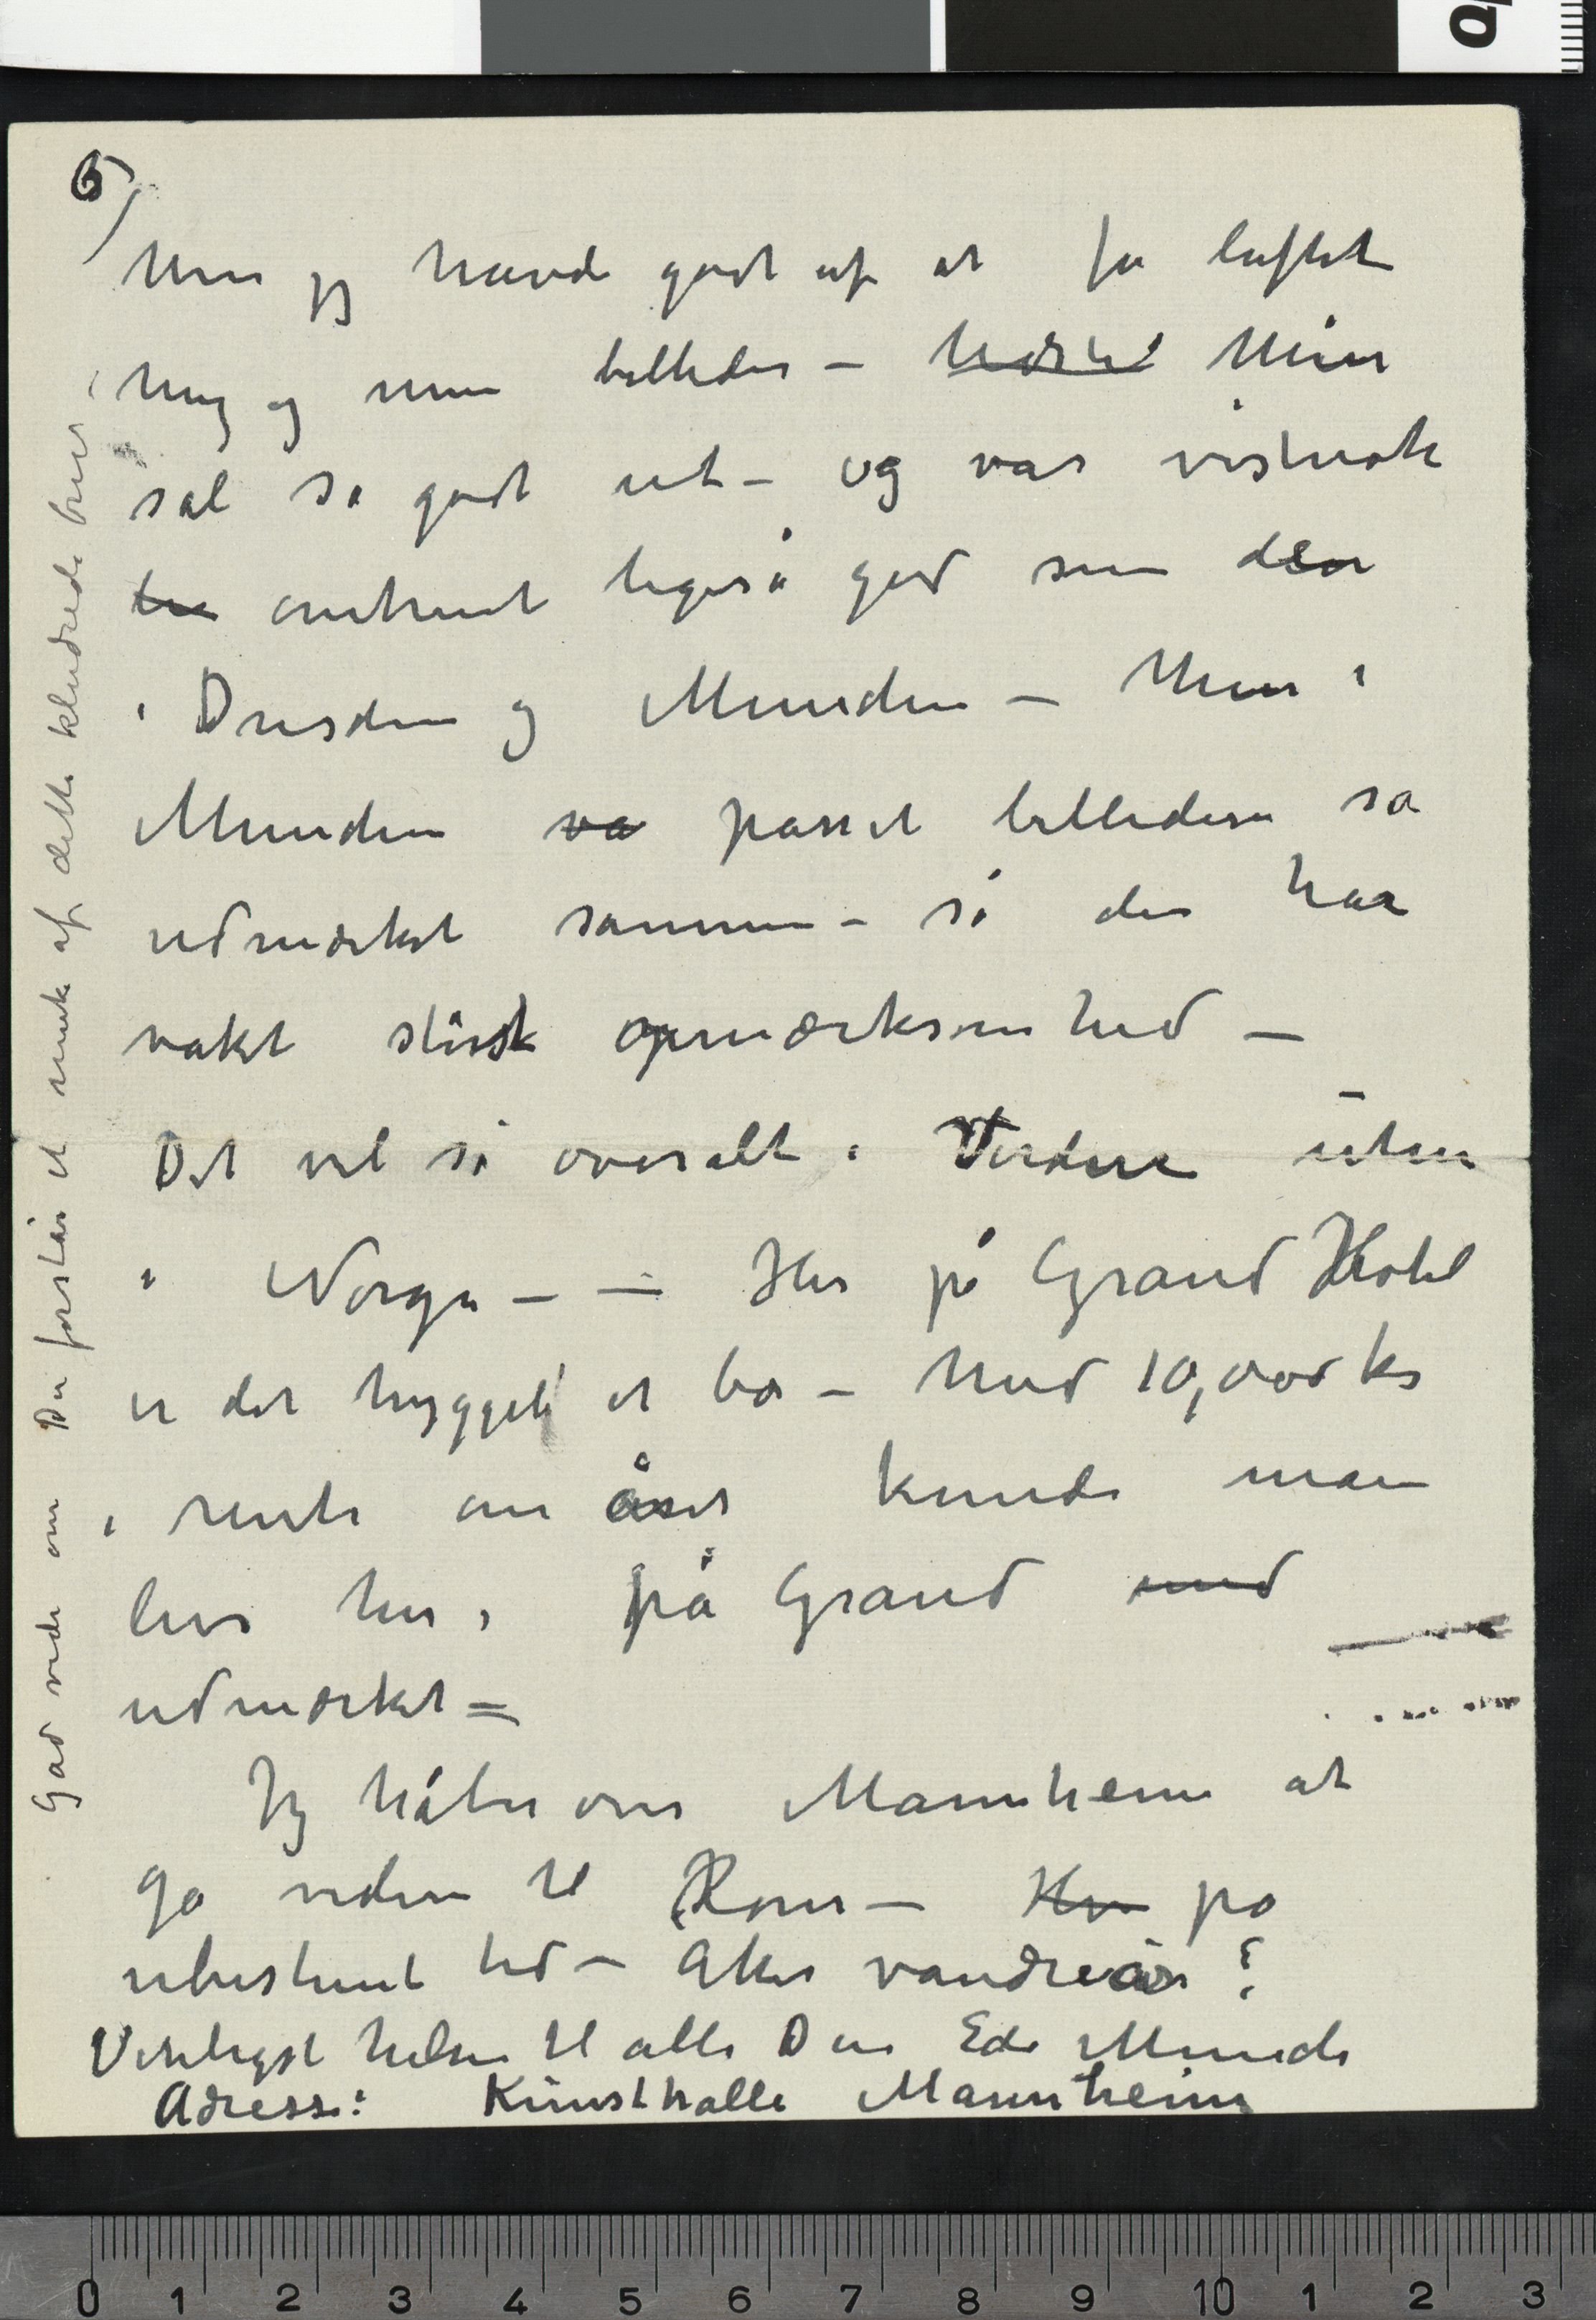 6/
Men jeg havde godt af at få luftet
mig og mine billeder – Min
sal så godt ut – og var vistnok
omtrent ligeså god som den
i Dresden og Munchen – Men i
Munchen va passet billederne så
udmærket sammen – så den har
vakt störst opmærksomhed –
Det vel så overalt i Verdene uten
i Norge – – Her på Grand Hotel
er det hyggeli at bo – Med 10,000 kr
i rente om året kunde man
leve her i på Grand med
udmærket =
Jeg håber over Mannheim at
gå videre til Rom – Hv på
ubestemt tid – Atter vandreår?
Venligst hilsen til alle Din Edv Munch
Adresse: Kunsthalle Mannheim
Gad vide om Du forstår et muk af dette kludrede brev